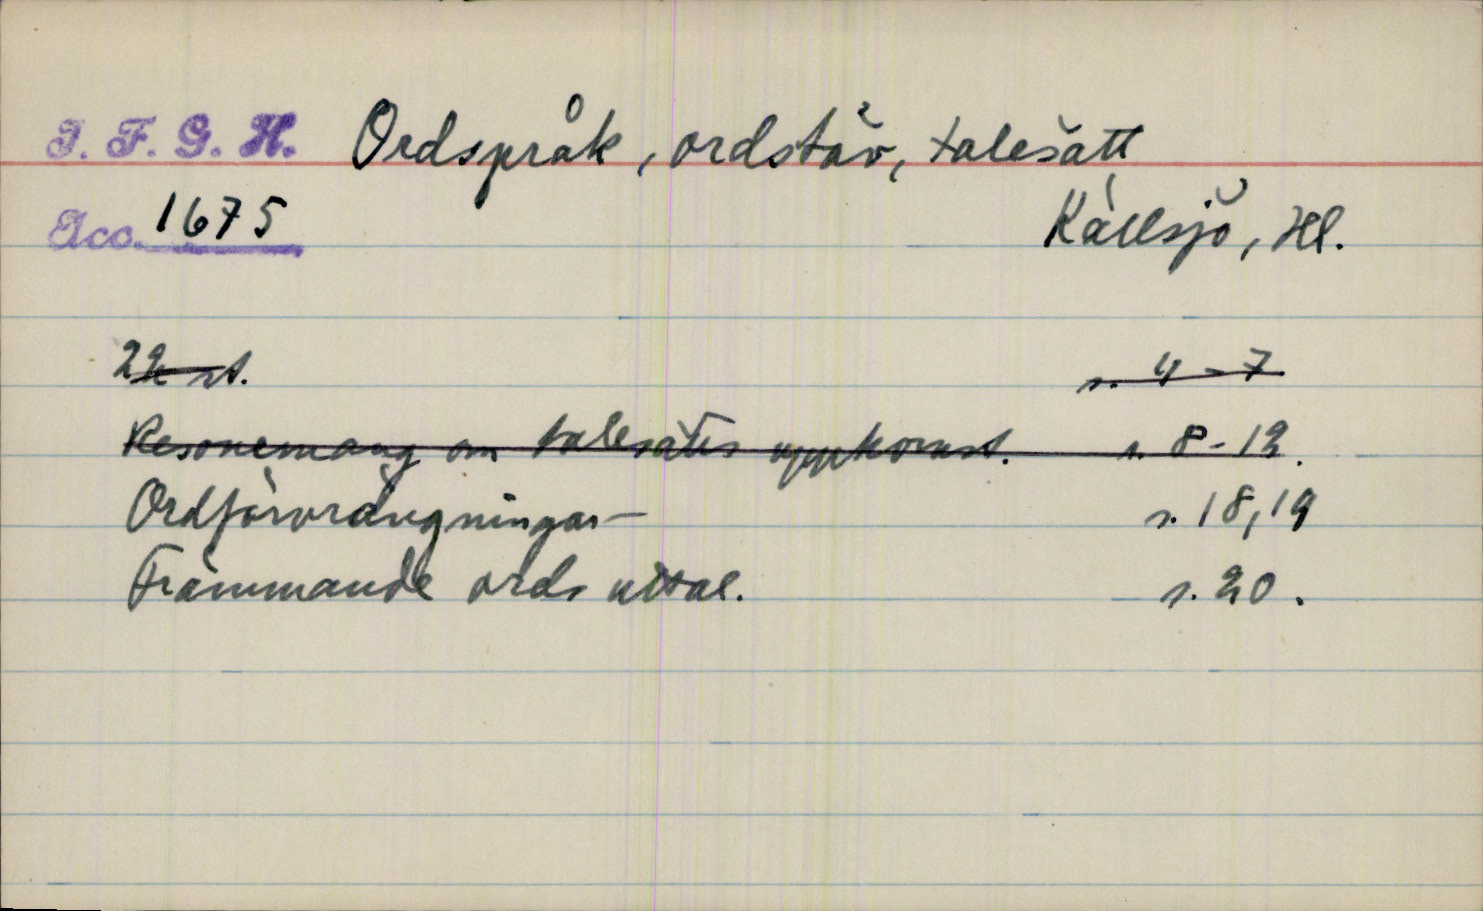 I. F. G. H. Ordspråk, ordstäv, talesätt
Acc. 1675 Källsjö, Hl.
22 st. s. 4-7
Resonemang om talesätts uppkomst. s. 8-12.
Ordförvrängningar- s. 18,19
Främmande ords uttal. s. 20.